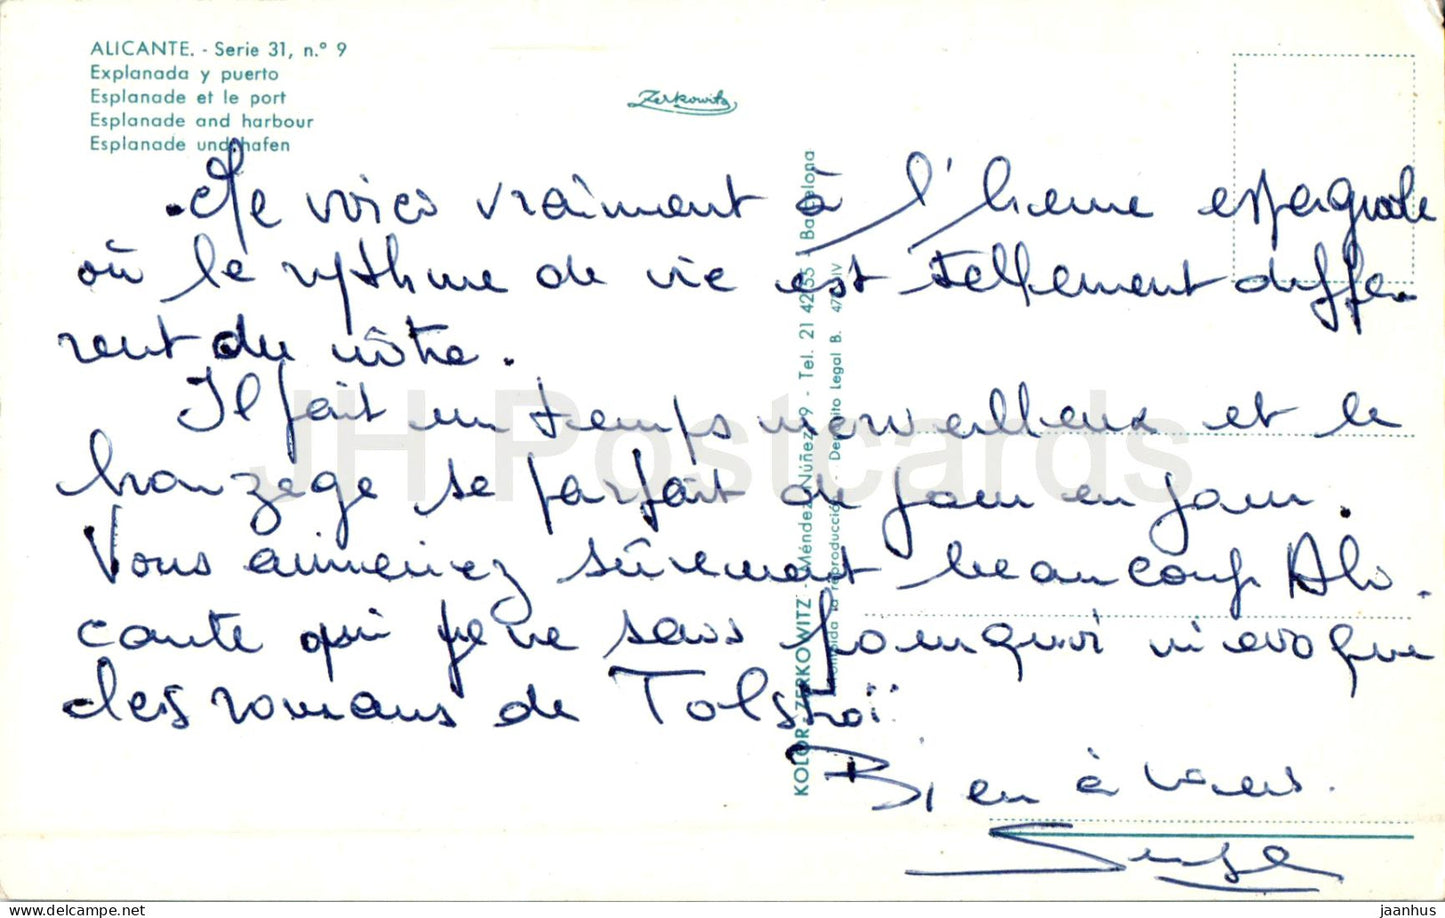 ALICANTE. - Serie 31, n.° 9
Explanada y puerto
Esplanade et le port
Esplanade and harbour
Esplanade und hafen
Zerkowitz
Je vis vraiment à l'heure espagnole
où le rythme de vie est tellement diffé-
rent du nôtre.
Il fait un temps merveilleux et le
bronzage se parfait de jour en jour.
Vous aimeriez sûrement beaucoup Ali-
cante qui je ne sais pourquoi m'évoque
des romans de Tolstoï
Bien à vous.
KOLOR-ZERKOWITZ - Méndez Núñez, 9 - Tel. 21 42 55 - Barcelona
reproducción - Depósito Legal B.
JH Postcards
jaanhus